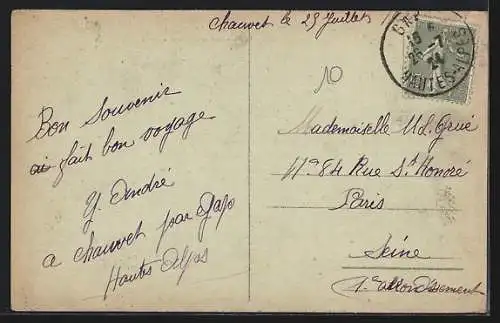 Chauvet le 25 Juillet
GAP
HAUTES-ALPES
10
Bon Souvenir
ai fait bon voyage
Y. André
a chauvet par Gap
Hautes Alpes
Mademoiselle Md. Grué
N° 84 Rue St Honoré
Paris
Seine
1er arrondissement